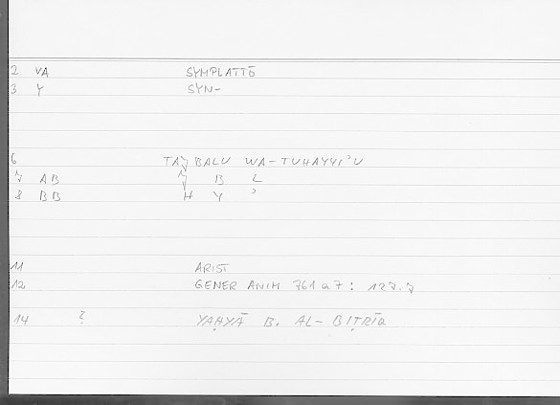 2 VA SYMPLATTŌ
3 Y SYN-
6 TAǧBALU WA-TUHAYYIʾU
7 AB ǧ B L
8 BB H Y ʾ
11 ARIST
12 GENER ANIM 761 a 7 : 127.7
14 ? YAḤYĀ B. AL-BIṬRĪQ